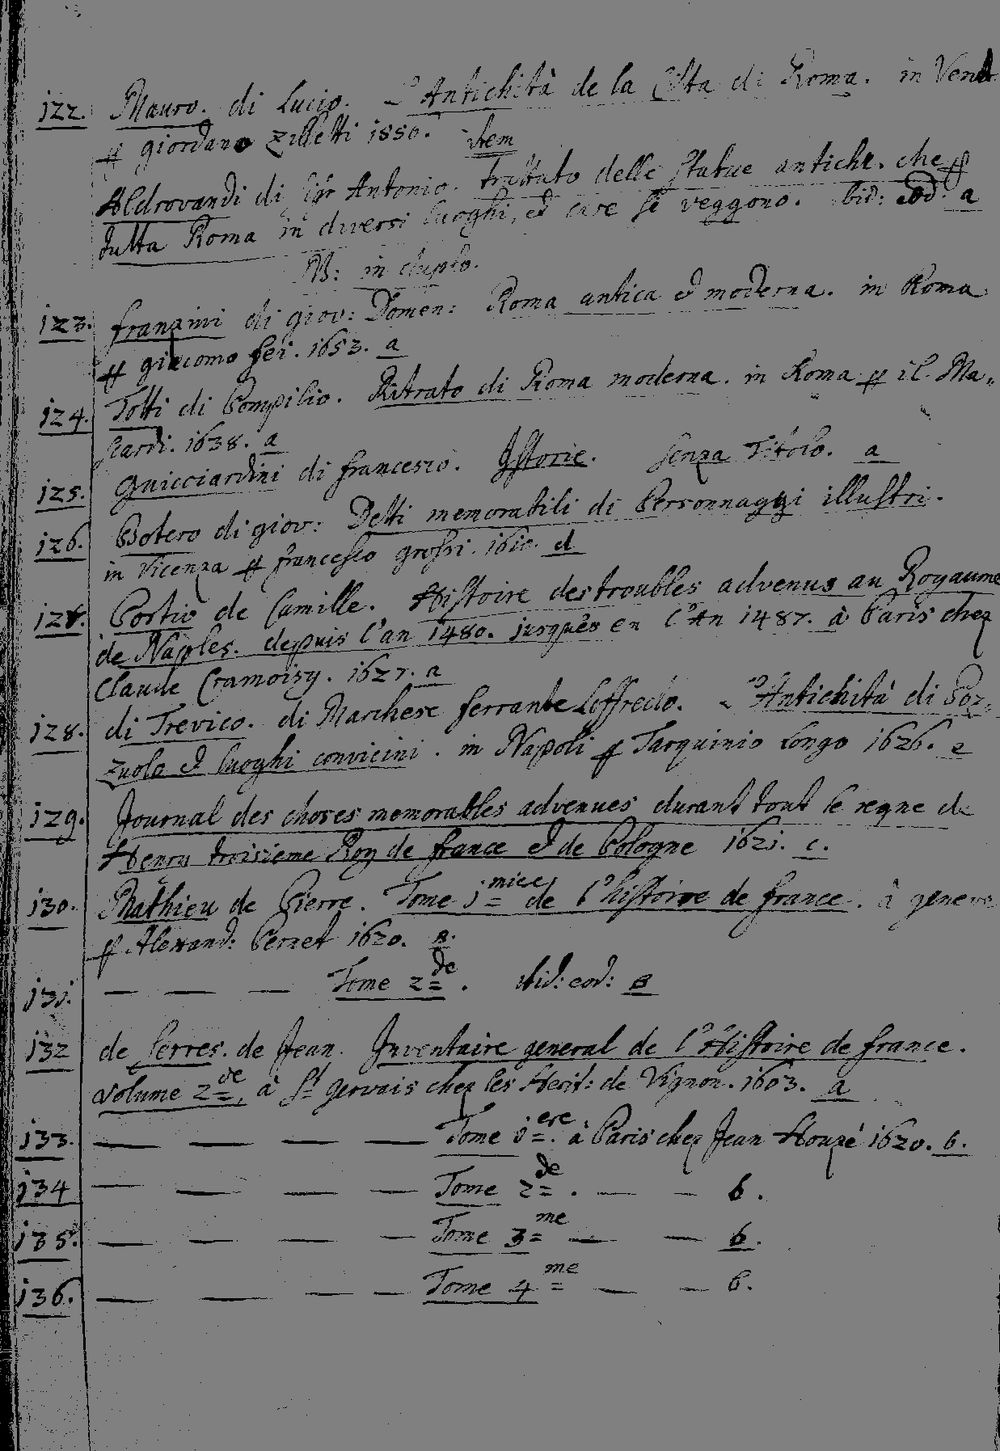 122. Mauro. di Lucio. L'Antichità de la Citta di Roma. in Vene
giordano Zilletti 1556. item
Aldrovandi di Antonio. trattato delle statue antiche. che
tutta Roma in diversi luoghi, et case si veggono. ibid: eod. a
NB: in duplo.
123. franzini di giov: Domen: Roma antica et moderna. in Roma
giacomo fei. 1653. a
124. Totti di Pompilio. Ritrato di Roma moderna. in Roma il Ma„
scardi. 1638. a
125. Guicciardini di francesco. Istorie. senza Titolo. a
126. Botero di giov: Detti memorabili di Personnaggi illustri.
in Vicenza francesco grossi. 1610. d
127. Portio de Camille. Histoire des troubles advenus au Royaume
de Naples. depuis l'an 1480. jusques en l'An 1487. à Paris chez
Claude Cramoisy. 1627. a
128. di Trevico. di Marchese ferrante Loffredo. L'Antichità di Poz„
zuolo et luoghi convicini. in Napoli Tarquinio Longo 1626. e
129. Journal des choses memorables advenues durant tout le regne de
Henry troisieme Roy de france et de Pologne 1621. c.
130. Mathieu de Pierre. Tome 1 de l'histoire de france. à geneve
Alexand: Pernet 1620. B.
131. — — — Tome 2de. ibid: eod: B
132 de Serres. de Jean. Inventaire general de l'Histoire de france.
volume 2de, à St gervais chez les Herit: de Vignon. 1603. a
133. — — — — Tome 1ere. à Paris chez Jean Houzé 1620. b.
134 — — — — Tome 2de. — — b.
135. — — — — Tome 3me — — b.
136. — — — — Tome 4me — — b.